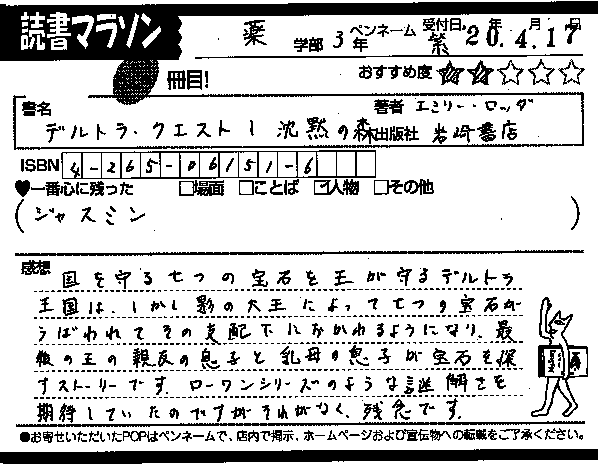 読書マラソン
薬 学部 3年 ペンネーム 紫 受付日 20年 4月 17日
冊目! おすすめ度 ★★☆☆☆
書名 デルトラ・クエスト1 沈黙の森
著者 エミリー・ロッダ
出版社 岩崎書店
ISBN 4-265-06151-6
♥一番心に残った □場面 □ことば ☑人物 □その他
(ジャスミン)
感想
国を守る七つの宝石を王が守るデルトラ
王国は、しかし影の大王によって七つの宝石が
うばわれてその支配下におかれるようになり、最
後の王の親友の息子と乳母の息子が宝石を探
すストーリーです。ローワンシリーズのような謎解きを
期待していたのですがそれがなく、残念です。
●お寄せいただいたPOPはペンネームで、店内で掲示、ホームページおよび宣伝物への転載をご了承ください。